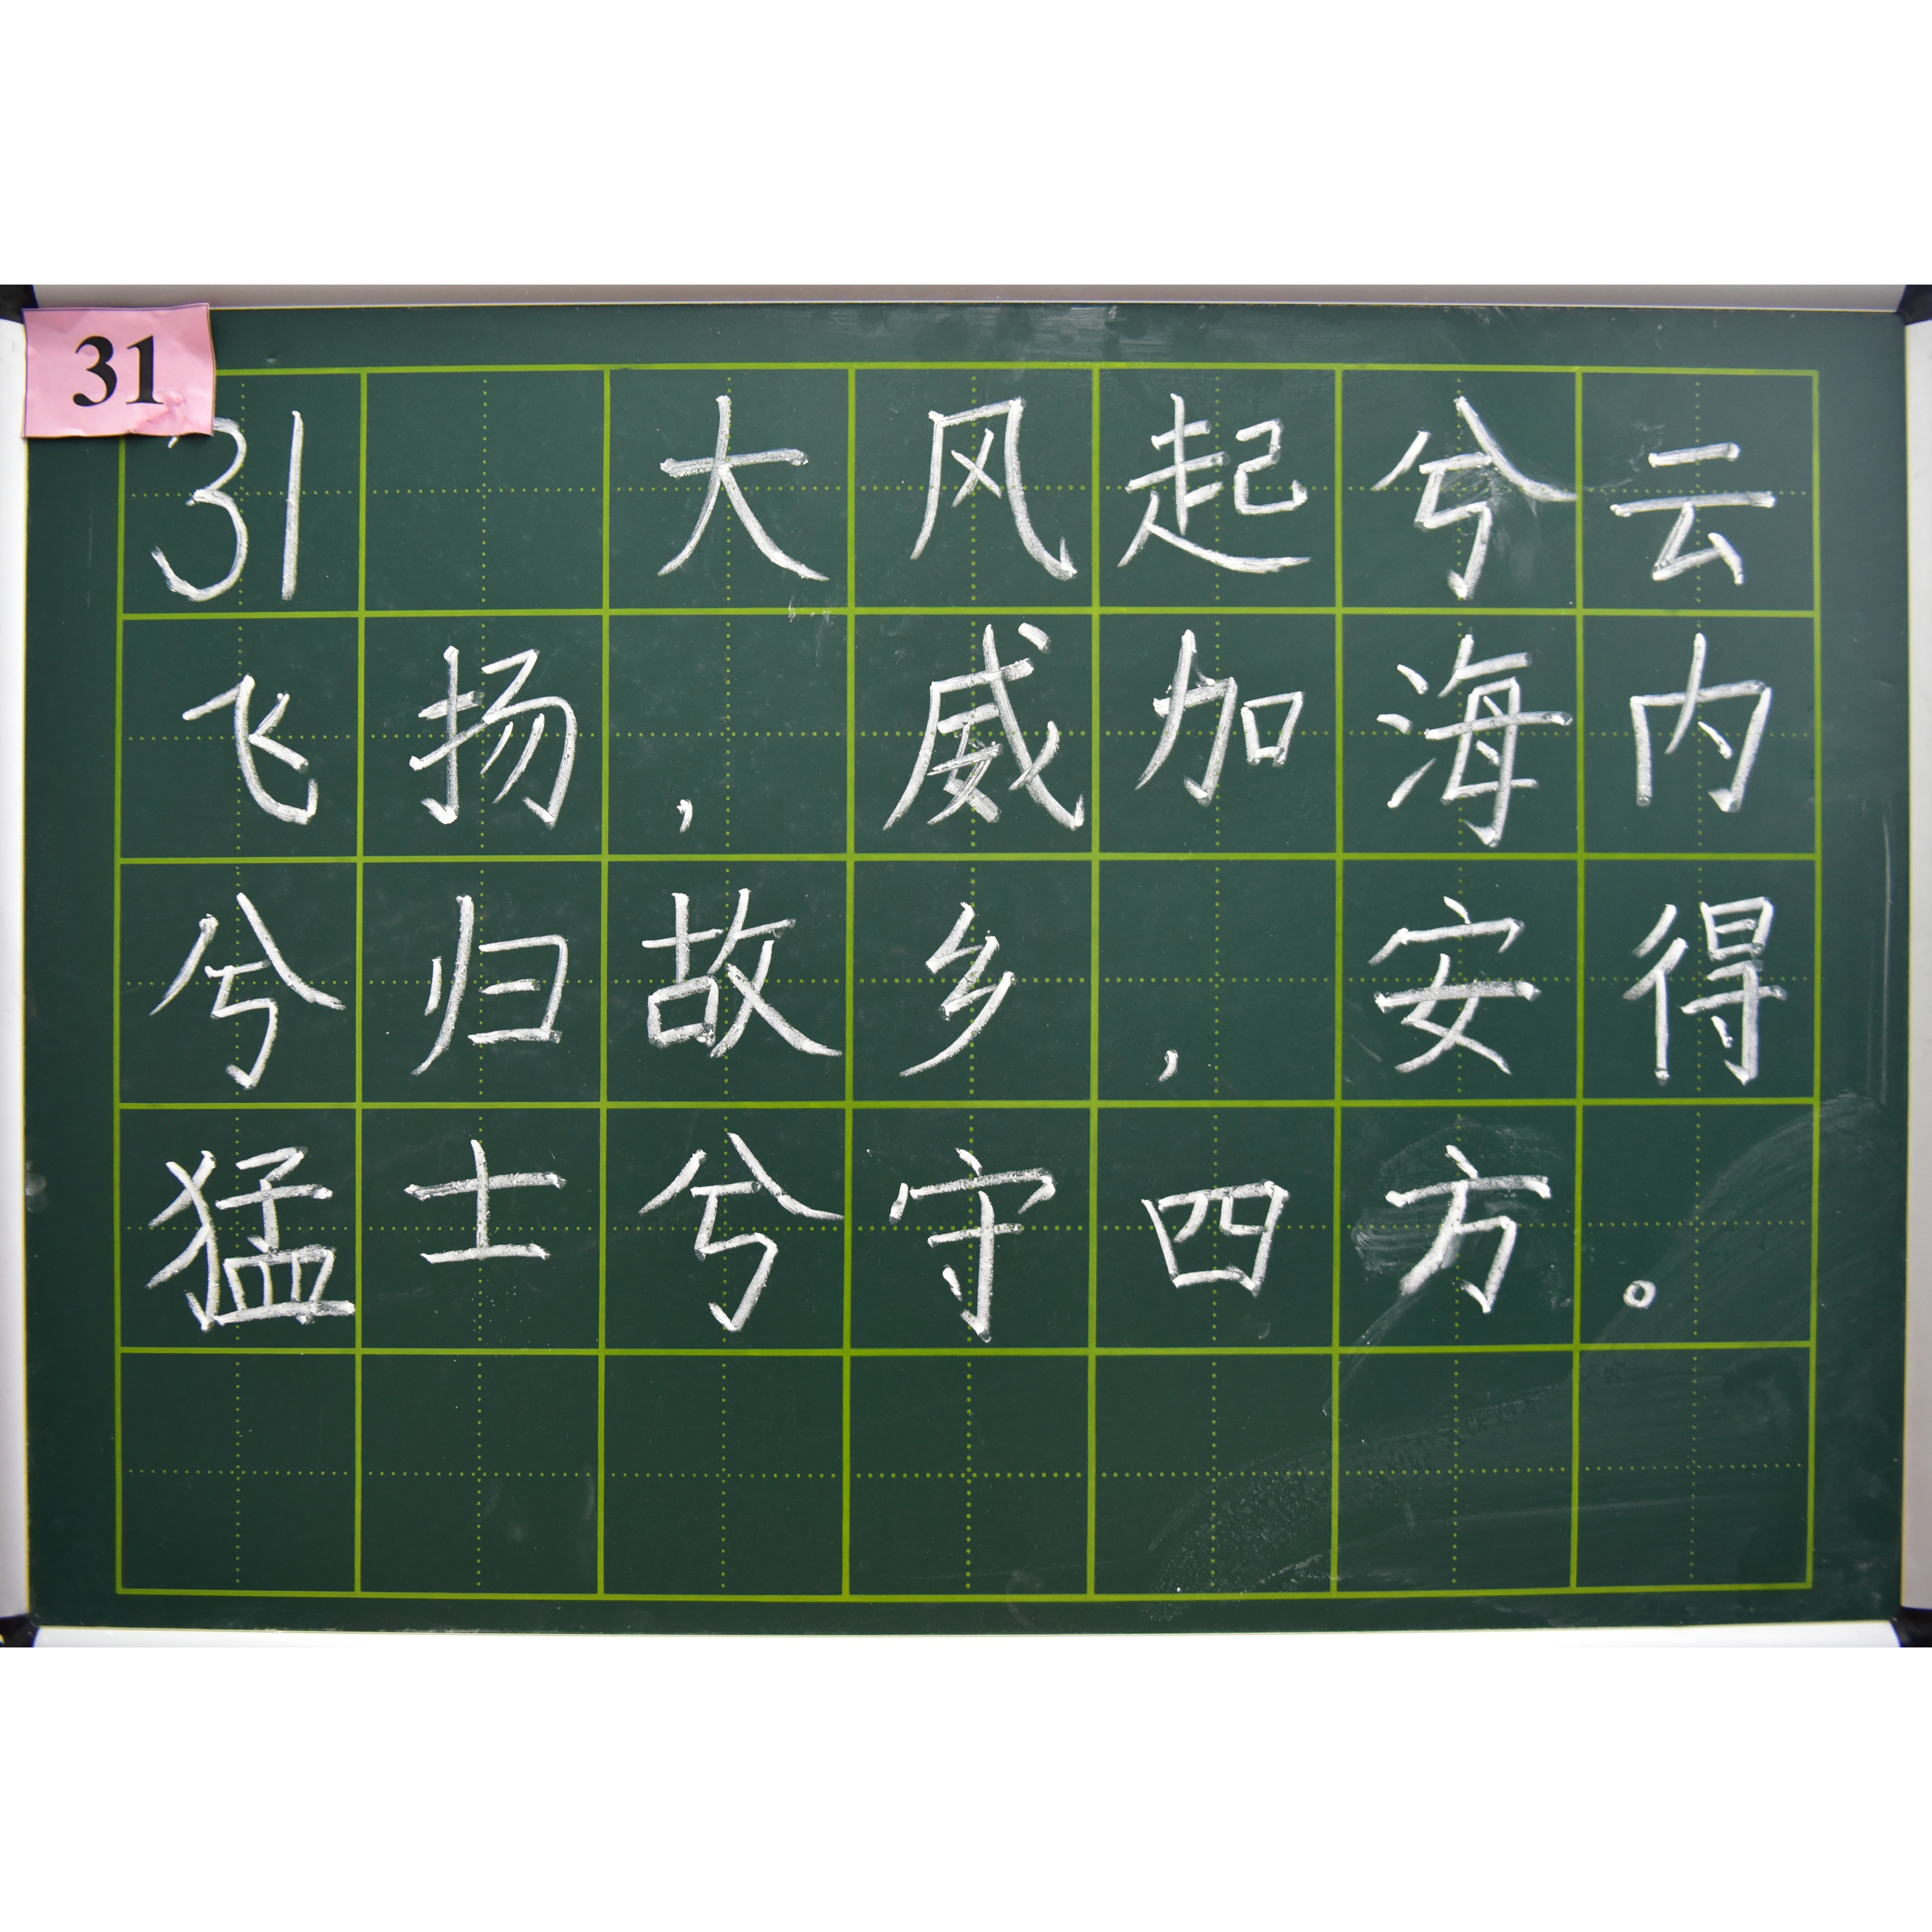 31
31 大风起兮云
飞扬，威加海内
兮归故乡，安得
猛士兮守四方。